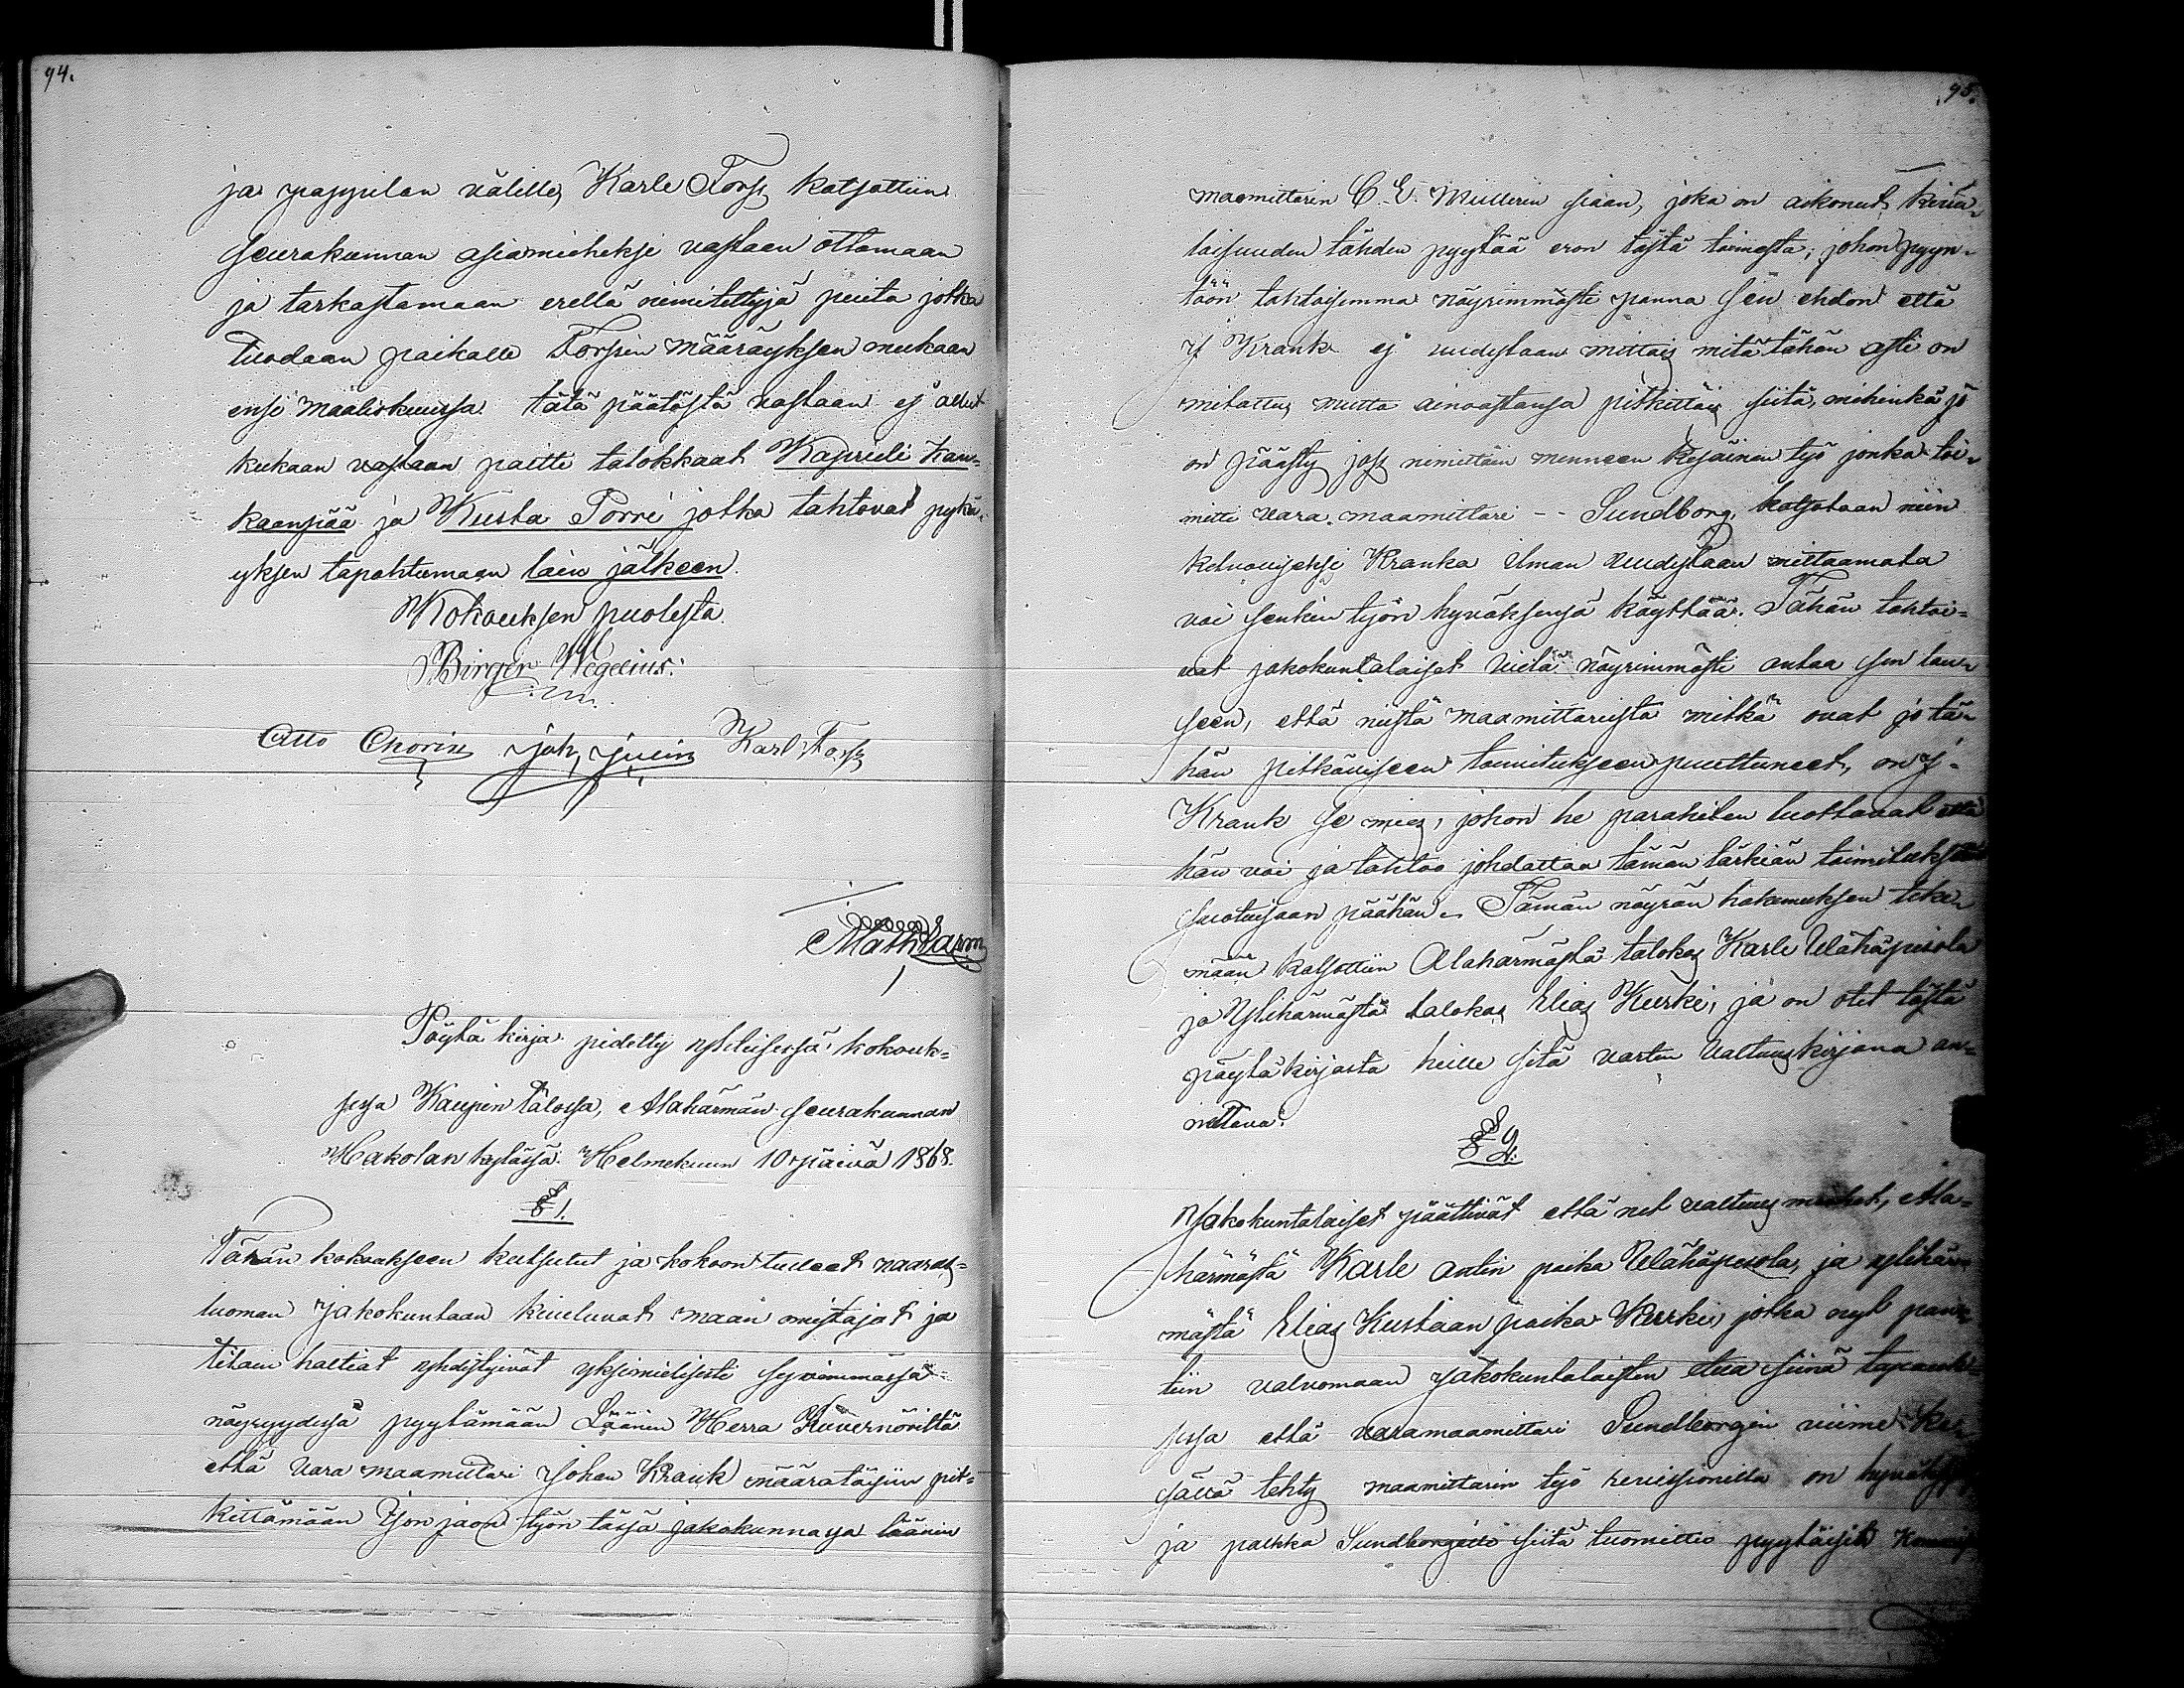 94.
ja pappilan välille, Karle Forss katsottiin
seurakunnan asiamieheksi vastaen ottamaan
ja tarkastamaan erellä nimitettyjä puita jotka
tuodaan paikalle Forssin määräyksen mukaan
ensi maaliskuussa tätä päätöstä vastaan ej ollut
kukaan vastaan paitti talokkaat Kaprieli Kau-
kaanpää ja Kusta Porre jotka tahtovat pykä-
yksen tapahtumaan lain jälkeen.
Kokouksen puolesta
Birger Wegelius.
Otto Chorin Joh, Juein Karl Forss
Math Sarm
Pöytä kirja pidetty ykteisessä kokouk-
sessa Kaupin talossa, Alahärmän seurakunnan
Hakolan kylässä Helmekuun 10 päivä 1868.
§ 1.
Tähän kokoukseen kutsutut ja kokoon tulleet naaras-
luoman jakokuntaan kuuluvat maan omistajat ja
tilain haltiat yhdistyivät yksimielisesti syvimmässä
nöyryydessä pyytämään Läänin Herra Kuvernöriltä
että vara maamittari Johan Krank määrätäisiin pit-
kittämään Ison jaon työn tässä jakokunnassa läänin
95.
maamittarin C. E. Müllerin siaan, joka on aikonut kivu-
laisuuden tähden pyytää eron tästä toimesta; johon pyyn-
töön tahtoisimma nöyrimmästi panna sen ehdon että
J Krank ej uudestaan mittais mitä tähän asti on
mitattu, mutta ainoastansa pitkittäis siitä, mihinkä jo
on päästy joss nimittäin menneen kesäinen työ jonka toi-
mitti vara maamittari -- Sundborg, katsotaan niin
kelvouiseksi Kranka ilman uudestaan mittaamata
voi senkin työn hyväksensä käyttää. Tähän tahtoi-
vat jakokuntalaiset vielä nöyrimmästi antaa sen lau-
seen, että niistä maamittareista mitkä ovat jo tä-
hän pitkäuiseen toimitukseen puuttuneet, on J.
Krank se mies, johon he parahiten luottavat että
hän voi ja tahtoo johdattaa tämän tärkiän toimituksen
suotuisaan päähän. Tämän nöyrän hakemuksen teke-
mään katsottiin Alahärmästä talokas Karle Ulähäpesola
ja Ylihärmästä talokas Elias Kurki, ja on otet tästä
pöytäkirjasta heille sitä varten Valtuuskirjana an-
nettava.
§ 2.
Jakokuntalaiset päättivät että net valtuus miehet, Ala-
härmästä Karle Antin poika Ulähäpesola, ja ylihär-
mästä Elias Kustaan poika Kurki, jotka nyt pan-
tiin valvomaan jakokuntalaisten etua siinä tapauk-
sessa että varamaamittari Sundborgin viime ke-
sänä tehty maamittarin työ revissionilla on
ja palkka Sundborgille siitä tuomittu pyytäisit